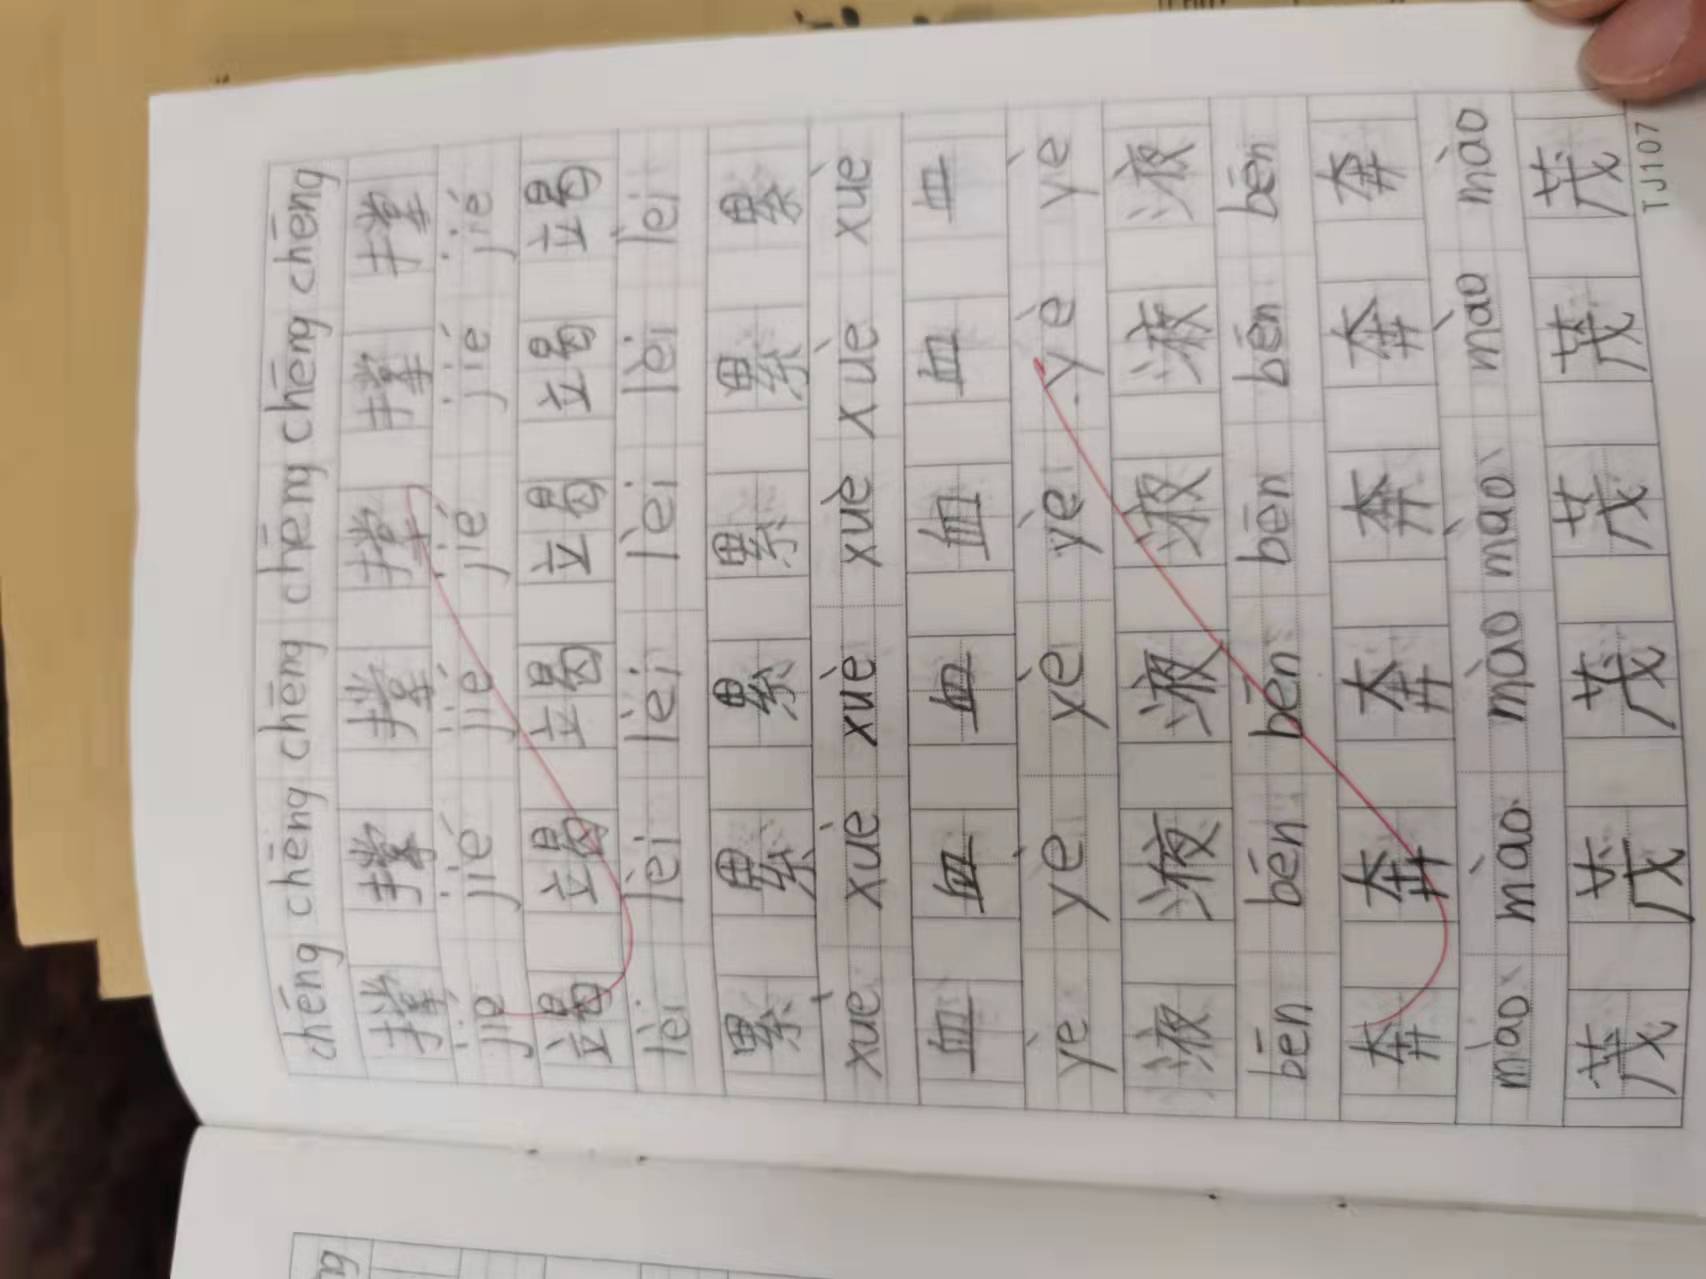 chēng chēng chēng chēng chēng chēng
撑 撑 撑 撑 撑 撑
jié jié jié jié jié jié
竭 竭 竭 竭 竭 竭
lèi lèi lèi lèi lèi lèi
累 累 累 累 累 累
xuè xuè xuè xuè xuè xuè
血 血 血 血 血 血
yè yè yè yè yè yè
液 液 液 液 液 液
bēn bēn bēn bēn bēn bēn
奔 奔 奔 奔 奔 奔
mào mào mào mào mào mào
茂 茂 茂 茂 茂 茂
TJ107